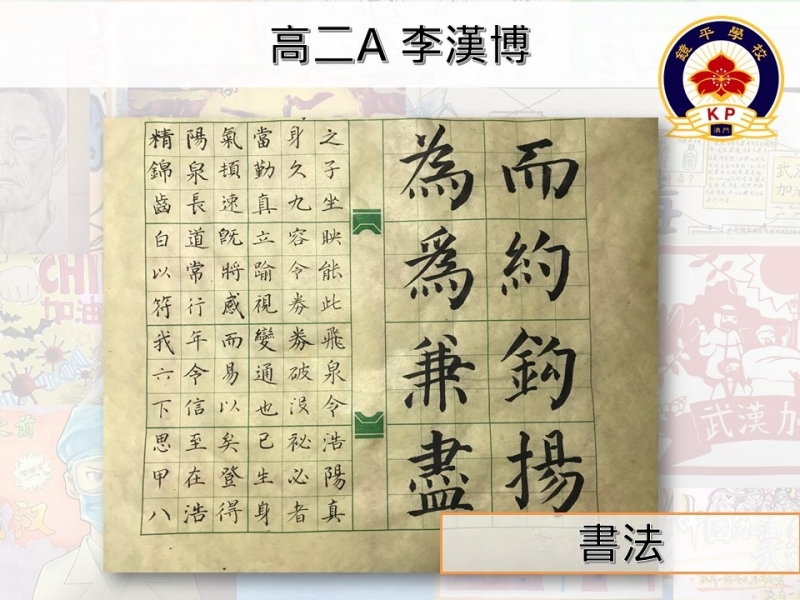 高二A 李漢博
鏡平學校
KP
澳門
而約鈎揚
為爲兼盡
之子坐映能此飛泉令浩陽真
身久九容令券券破沒祕必者
當勤真立踰視變通也已生身
氣頓速既將感而易以矣登得
陽泉長道常行年令信至在浩
精錦齒白以符我六下思甲八
書法
CHI
加油
武漢加